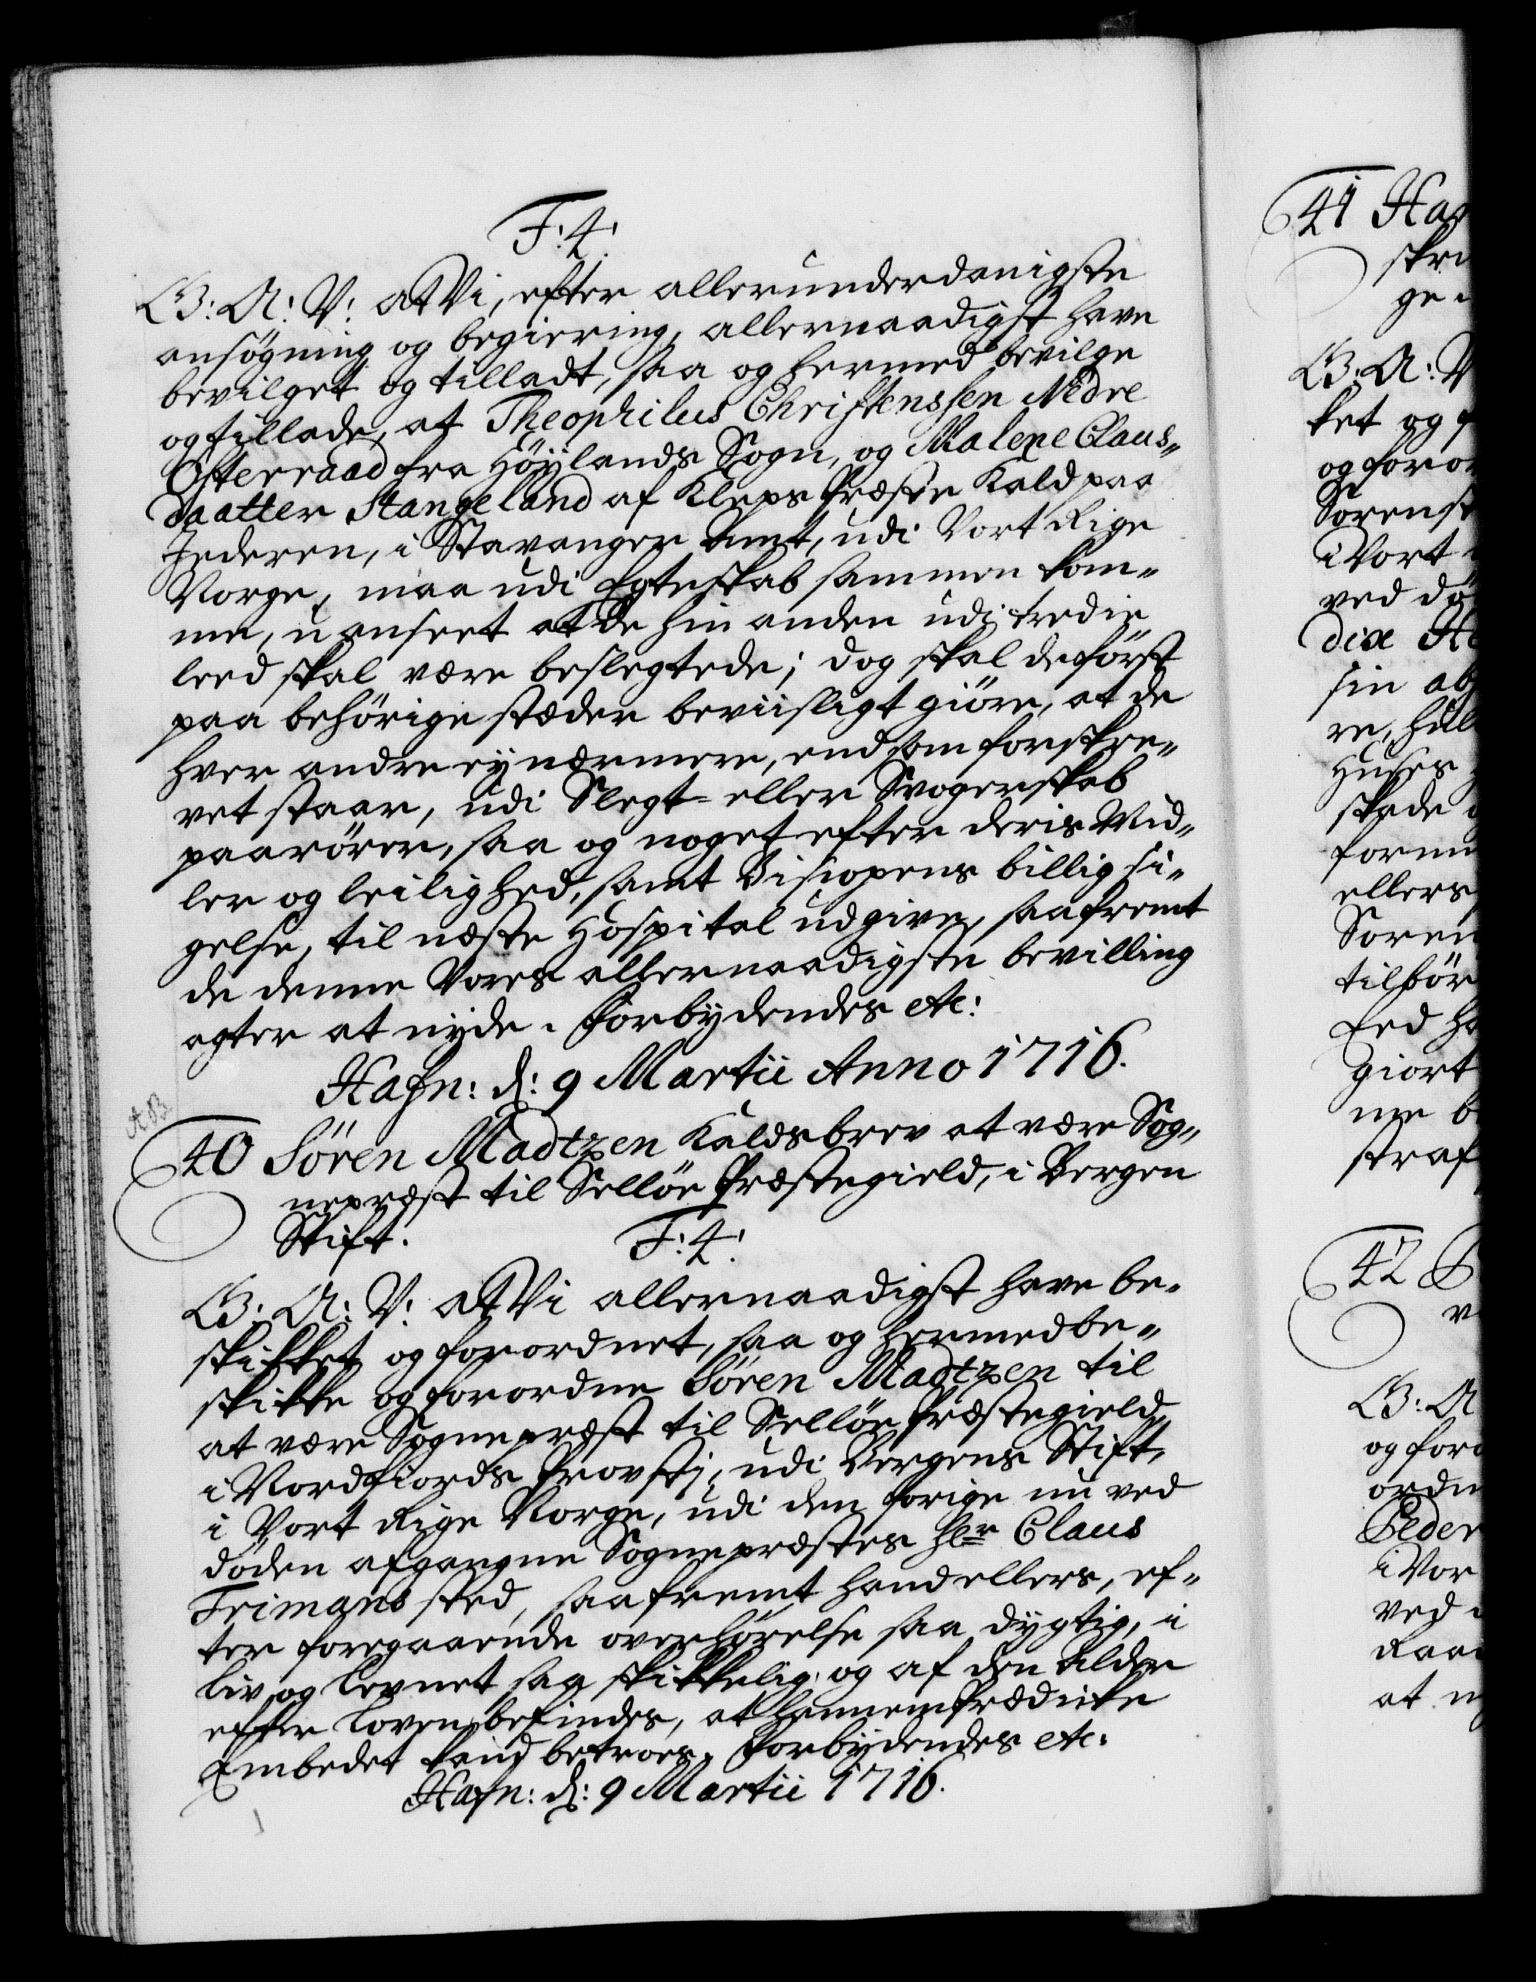 F: 4.
G: A: V: at Vi, efter allerunderdanigste
ansøgning og begiering, allernaadigst have
bevilget og tilladt, saa og hermed bevilge
og tillade, at Theophilus Christenssen Nedre
Øfterraad fra Høylands Sogn, og Malene Claus-
daatter Stangeland af Kleps Præste Kald paa
Jederen, i Stavanger Amt, udi Vort Rige
Norge, maa udi Egteskab sammen kom-
me, uanseet at de hin anden udi tredie
leed skal være beslegtede; dog skal de først
paa behørige stæder beviisligt giøre, at de
hver andre ey nærmere, end som forskre-
vet staar, udi Slegt- eller Svogerskab
paarører, saa og noget efter deris Mid-
ler og leilighed, samt Bisiopens billig si-
gelse, til næste Hospital udgive, saafremt
de denne Vores allernaadigste bevilling
agter at nyde. Forbydendes etc:
Hafn: d: 9 Martii Anno 1716.
AB
40 Søren Madtzen Kaldsbrev at være Sog-
nepræst til Selløe Præstegield, i Bergen
Stift.
F: 4.
G: A: V: at Vi allernaadigst have be-
skikket og forordnet, saa og hermed be-
skikke og forordne Søren Madtzen til
at være Sognepræst til Selløe Præstegield
i Nordfiords Provstj, udi Bergens Stift,
i Vort Rige Norge, udi den forige nu ved
døden afgangne Sognepræstes Her Claus
Frimans sted, saafremt hand ellers, ef-
ter foregaaende overhørelse saa dygtig, i
Liv og Levnet saa skikkelig, og af den Alder
efter Loven befindes, at hannem Prædicke
Embedet kand betroes. Forbydendes etc:
Hafn: d: 9 Martii 1716.
41
ge
G: A: V
ket og f
og foror
Sørenss
i Vort
ved dø
diæ
sin
re,
Huses
skade
ellers
Søren
tilbør
Eed
giort
me b
straf
42
G: A
og foro
ordne
Peder
i Vor
ved
Raa
at